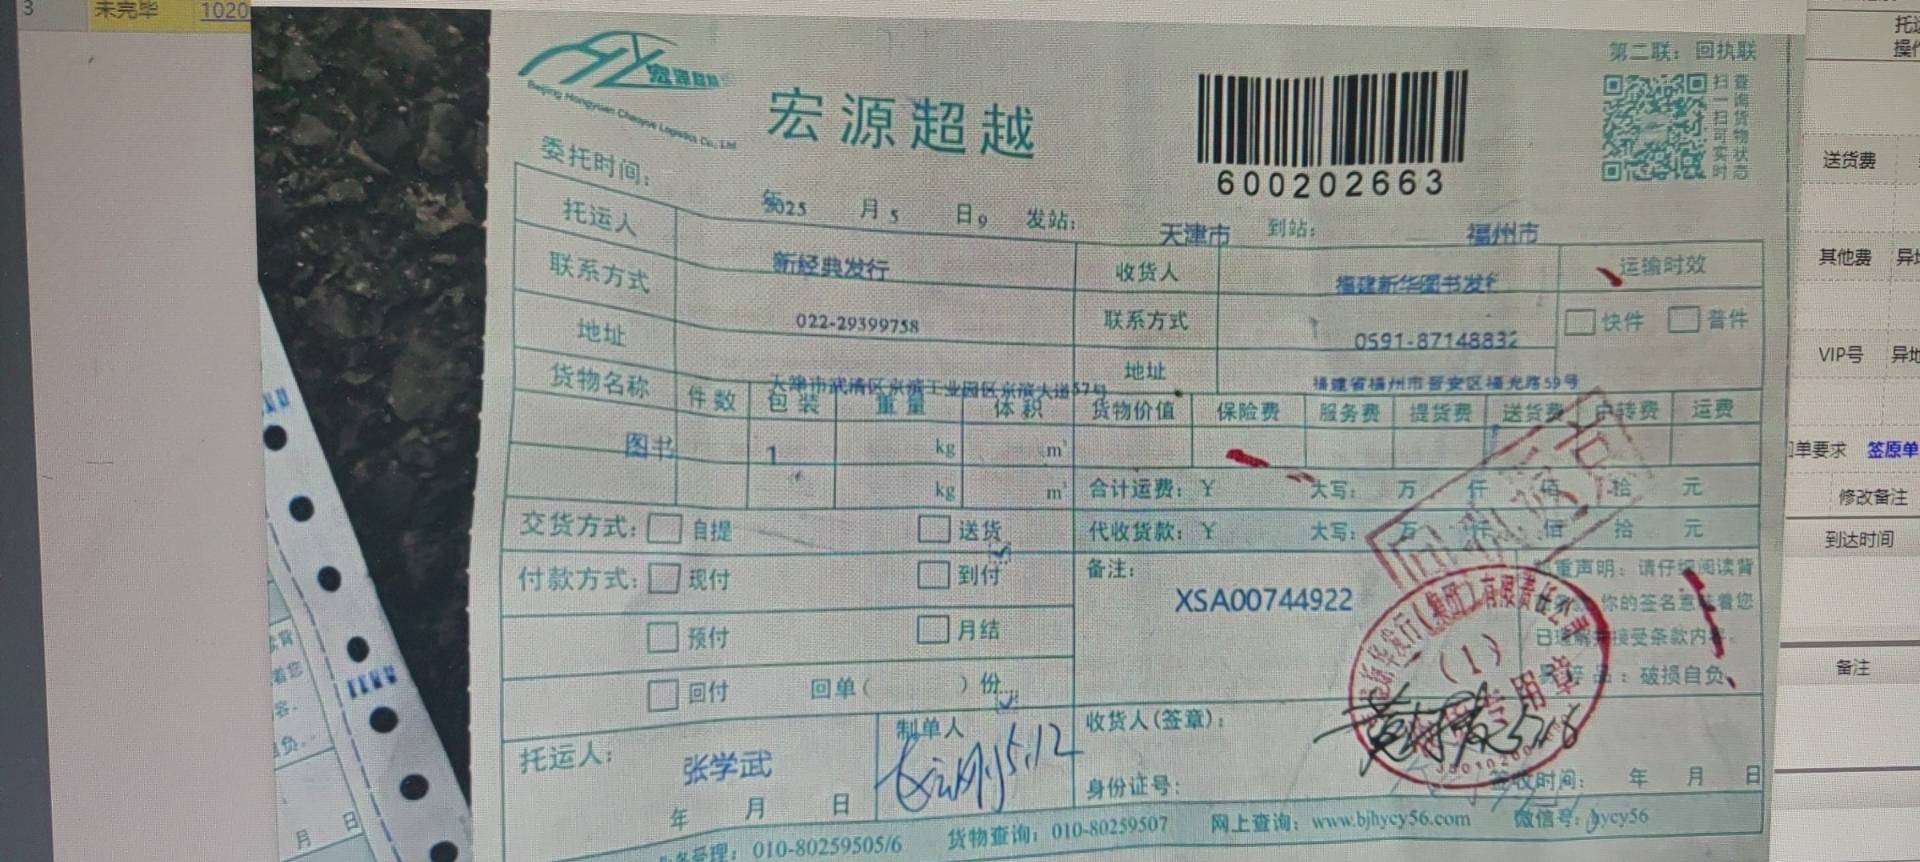 3 未完毕 1020
第二联：回执联
宏源超越
Beijing Hongyuan Chaoyue Logistics Co., Ltd
宏源超越
600202663
扫一扫可实时
查询货物状态
委托时间：
2025 月 5 日 9 发站： 天津市 到站： 福州市
托运人 新经典发行 收货人 福建新华图书发行 运输时效
联系方式 022-29399758 联系方式 0591-87148832 快件 普件
地址 天津市武清区京滨工业园区京滨大道57号 地址 福建省福州市晋安区福光路59号
货物名称 件数 包装 重量 体积 货物价值 保险费 服务费 提货费 送货费 中转费 运费
图书 1 kg m³
kg m³ 合计运费：¥ 大写： 万 仟 佰 拾 元
交货方式： 自提 送货 代收货款：¥ 大写： 万 仟 佰 拾 元
付款方式： 现付 到付 备注： XSA00744922
预付 月结
回付 回单（ ）份
重声明：请仔细阅读背
你的签名意味着您
已理解并接受条款内容。
易碎品：破损自负、
（1）
专用章
托运人： 张学武 制单人 5.12 收货人(签章)：
年 月 日 身份证号： 签收时间： 年 月 日
业务受理：010-80259505/6 货物查询：010-80259507 网上查询：www.bjhycy56.com 微信号：hycy56
托运
操作
送货费
其他费 异地
VIP号 异地
单要求 签原单
修改备注
到达时间
备注
着您
月 日